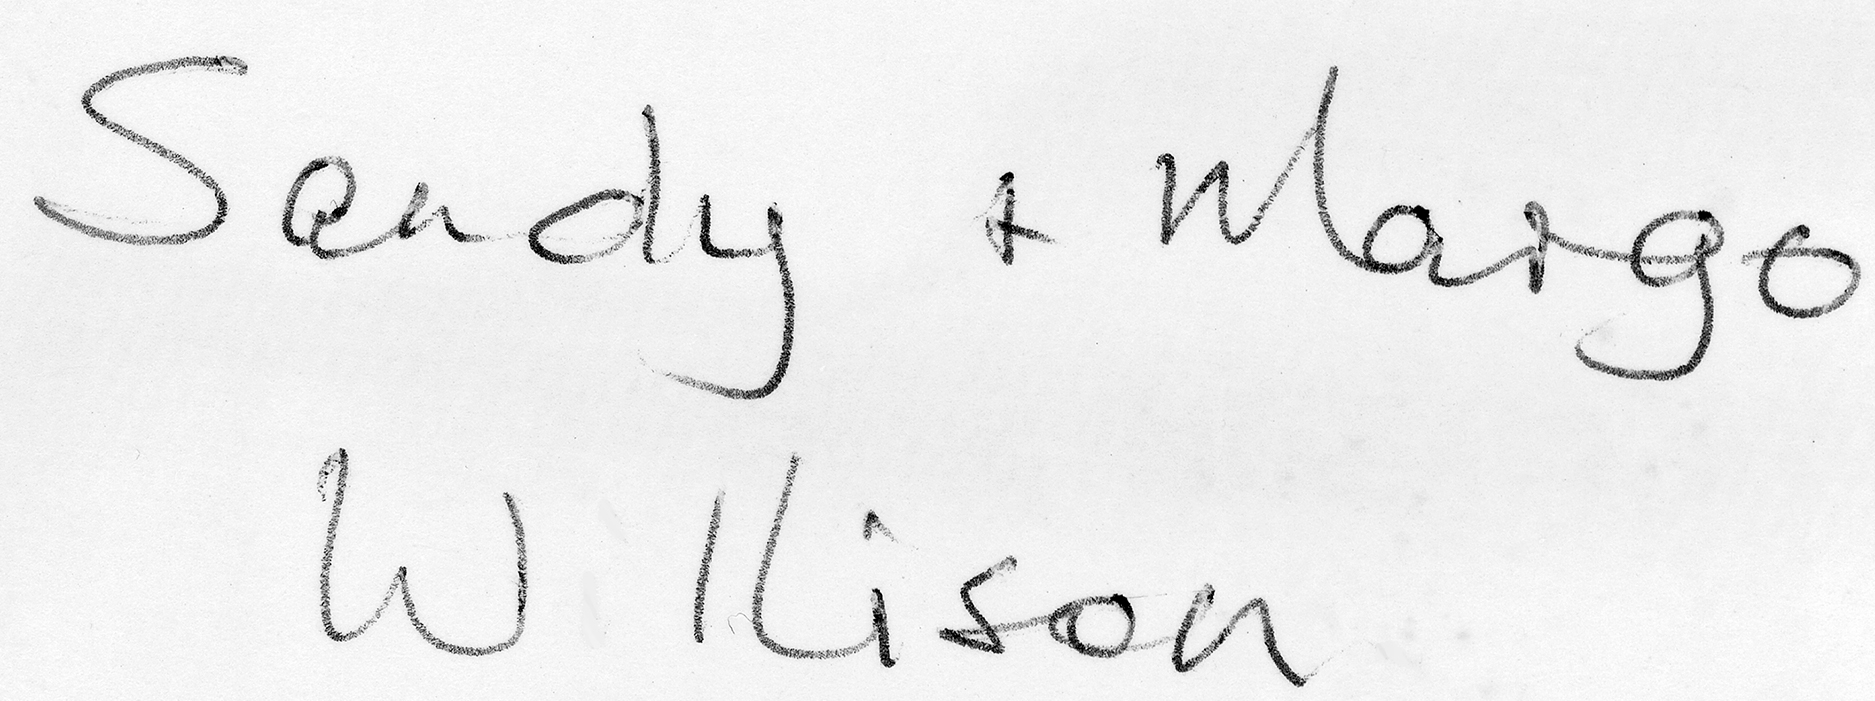 Sandy + Margo
Willison